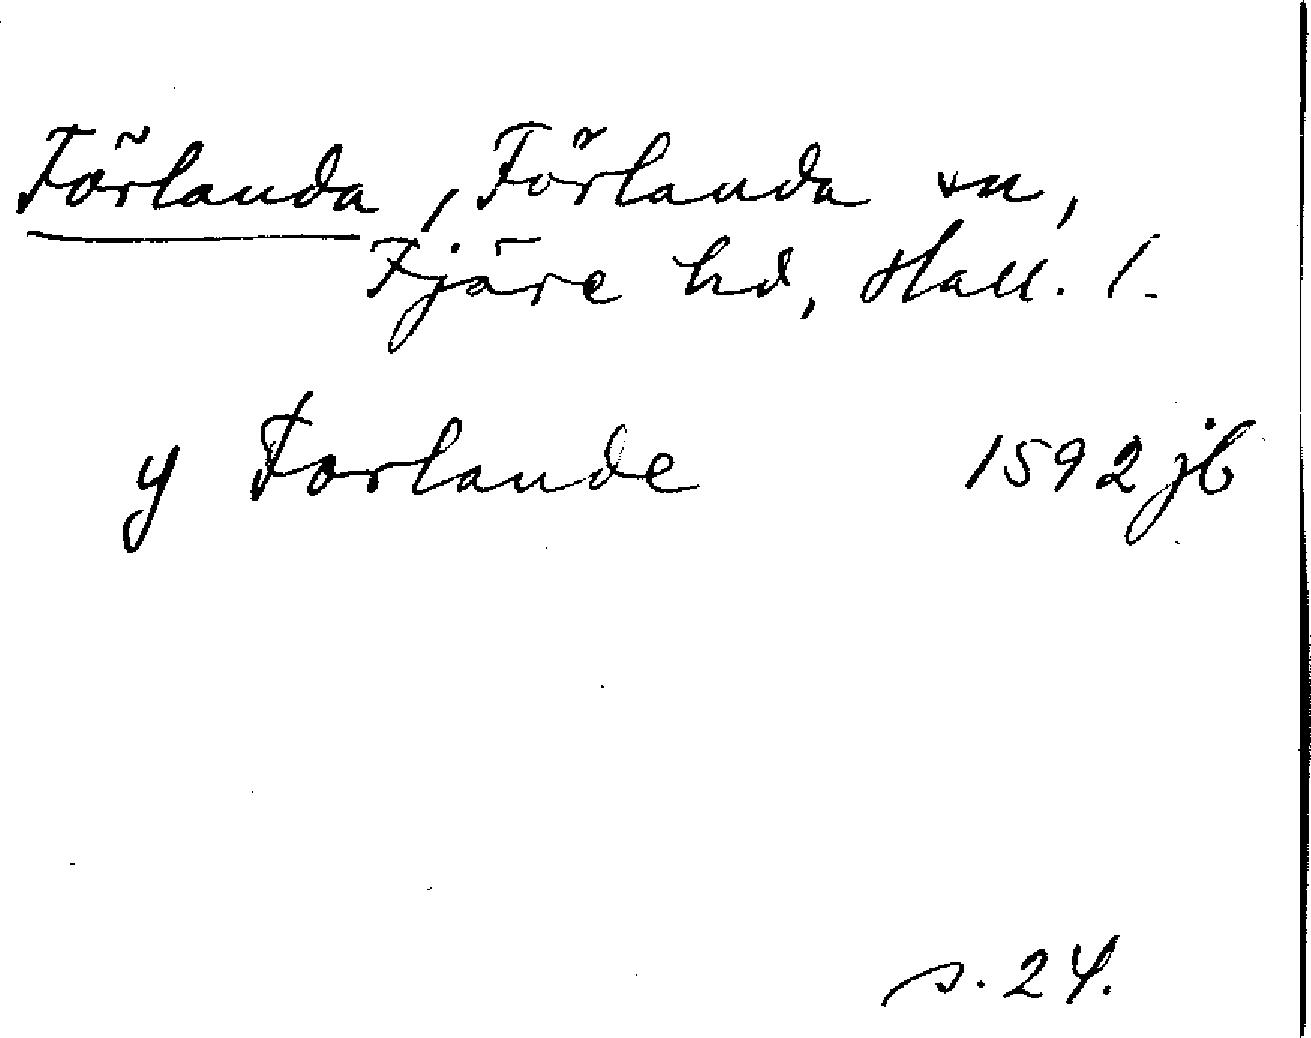 Förlanda, Förlanda sn,
Fjäre hd, Hall. l.
y Forlande 1592 jb
s. 24.